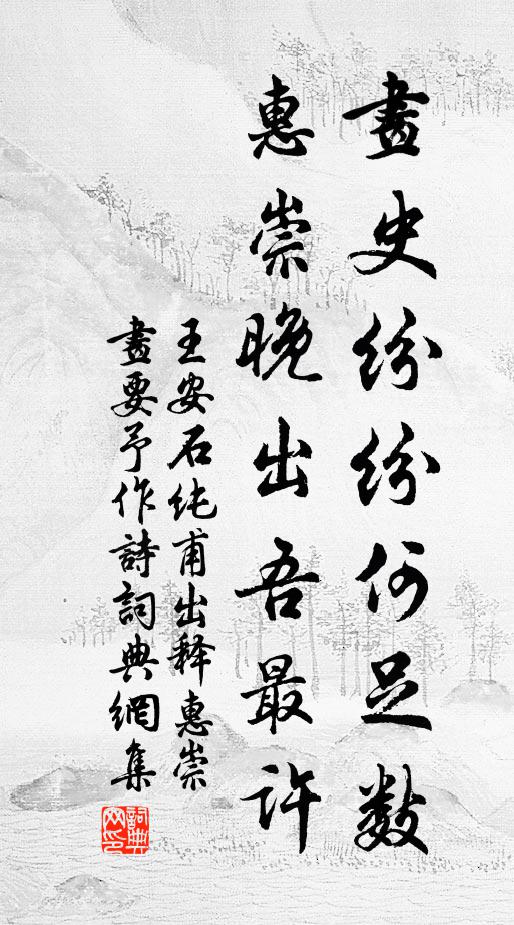 畫史紛紛何足數
惠崇晚出吾最許
王安石纯甫出释惠崇
畫要予作詩詞典網集
詞典網印